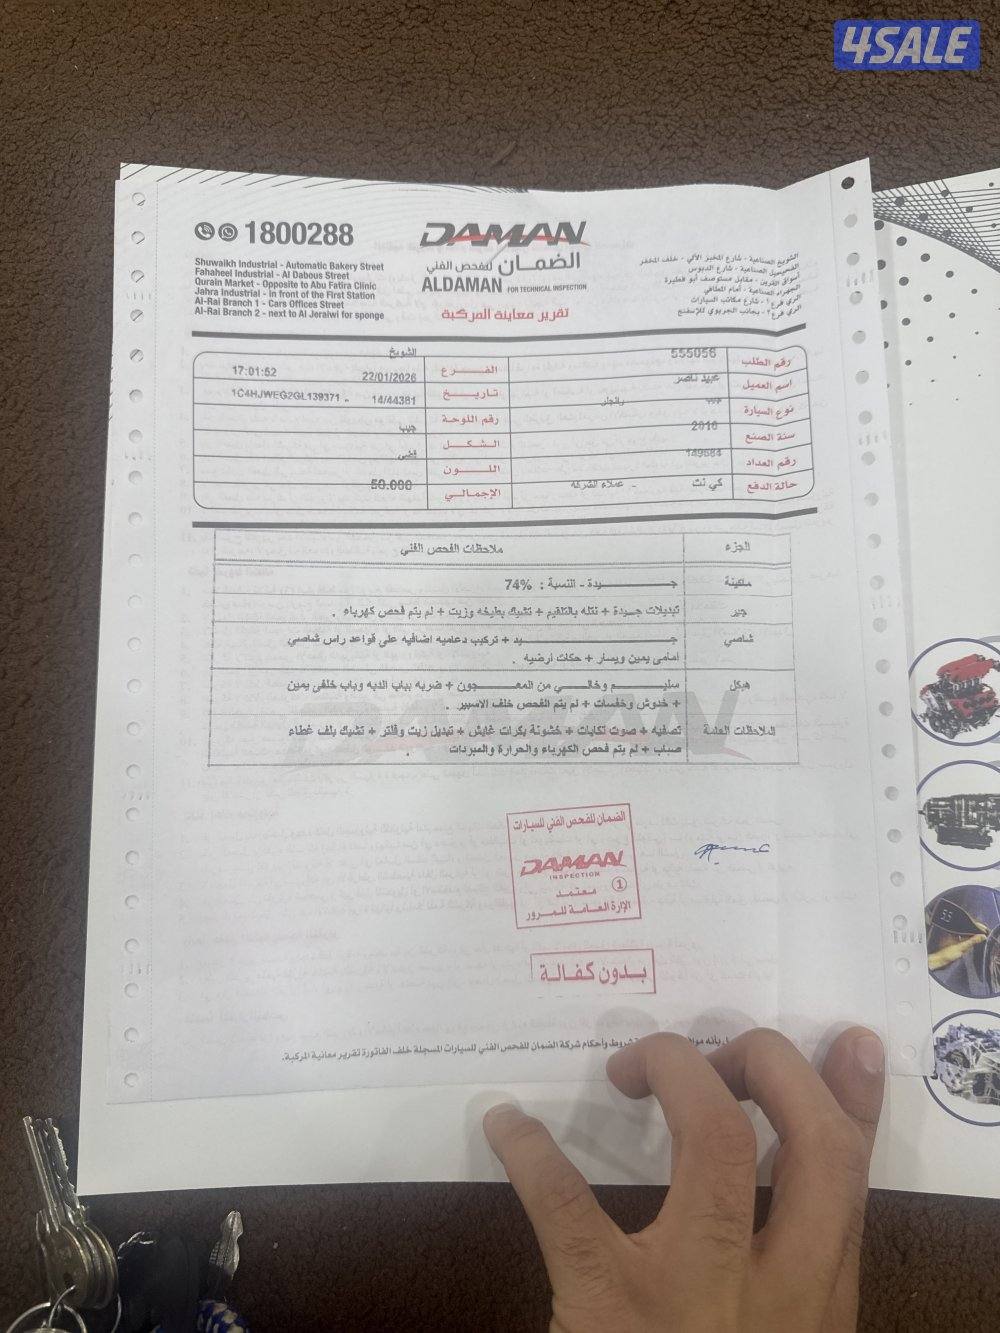 4SALE
1800288
DAMAN
الضمان للفحص الفني
ALDAMAN FOR TECHNICAL INSPECTION
تقرير معاينة المركبة
Shuwaikh Industrial - Automatic Bakery Street
Fahaheel Industrial - Al Dabous Street
Qurain Market - Opposite to Abu Fatira Clinic
Jahra Industrial - in front of the First Station
Al-Rai Branch 1 - Cars Offices Street
Al-Rai Branch 2 - next to Al Jeraiwi for sponge
الشويخ الصناعية - شارع المخبز الآلي - خلف المخفر
الفحيحيل الصناعية - شارع الدبوس
أسواق القرين - مقابل مستوصف أبو فطيرة
الجهراء الصناعية - أمام المطافي
الري فرع ١ - شارع مكاتب السيارات
الري فرع ٢ - بجانب الجريوي للإسفنج
رقم الطلب 555056 الفرع الشويخ
اسم العميل عبيد ناصر تاريخ 22/01/2026 17:01:52
نوع السيارة جيب رانجلر رقم اللوحة 14/44381 - 1C4HJWEG2GL139371
سنة الصنع 2016 الشكل جيب
رقم العداد 149684 اللون فضي
حالة الدفع كي نت - عملاء الشركة الإجمالي 50.000
الجزء ملاحظات الفحص الفني
ماكينة جيدة - النسبة : 74%
جير تبديلات جيدة + نتله بالتلقيم + تشيك بطيخه وزيت + لم يتم فحص كهرباء .
شاصي جيد + تركيب دعاميه اضافيه على قواعد راس شاصي
أمامى يمين ويسار + حكات أرضيه .
هيكل سليم وخالي من المعجون + ضربه بباب الدبه وباب خلفى يمين
+ خدوش وخفسات + لم يتم الفحص خلف الاسبير .
الملاحظات العامة تصفيه + صوت تكايات + خشونة بكرات غايش + تبديل زيت وفلتر + تشيك بلف غطاء
صباب + لم يتم فحص الكهرباء والحرارة والمبردات .
الضمان للفحص الفني للسيارات
DAMAN
INSPECTION
معتمد 1
الإدارة العامة للمرور
بدون كفالة
شروط وأحكام شركة الضمان للفحص الفني للسيارات المسجلة خلف الفاتورة تقرير معاينة المركبة.